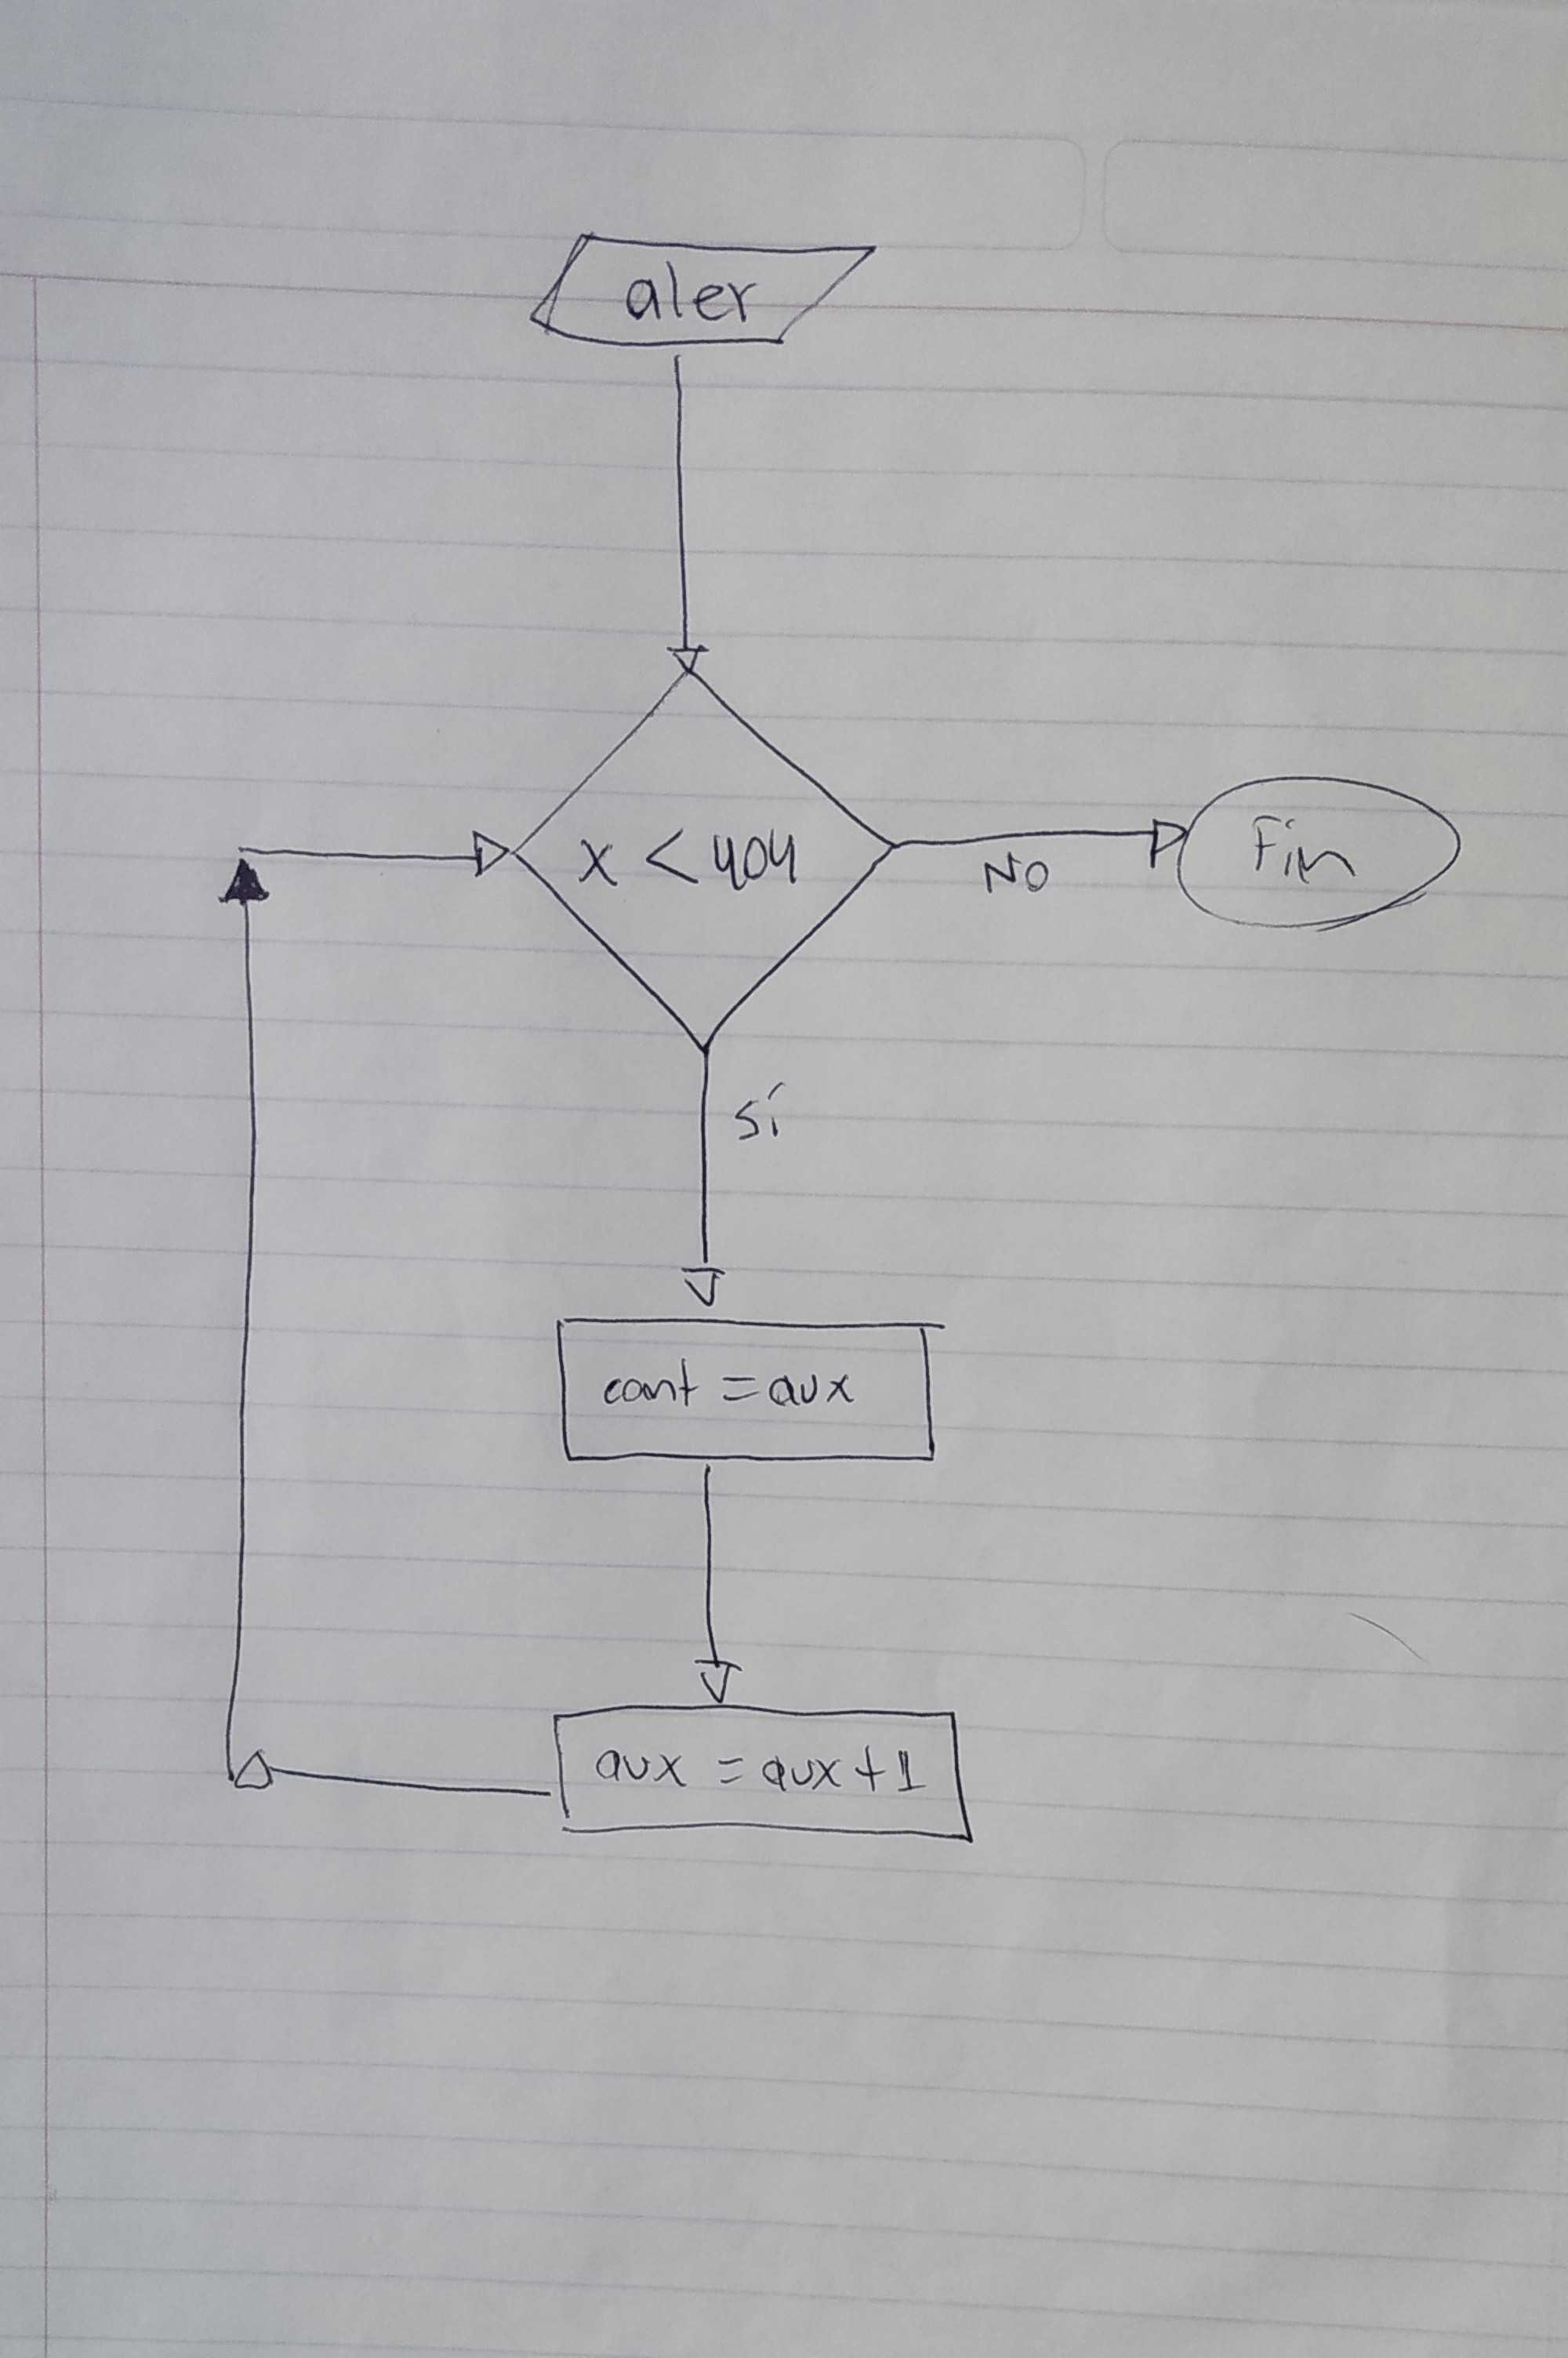 aler
x < 404
NO
Fin
sí
cont = aux
aux = aux + 1